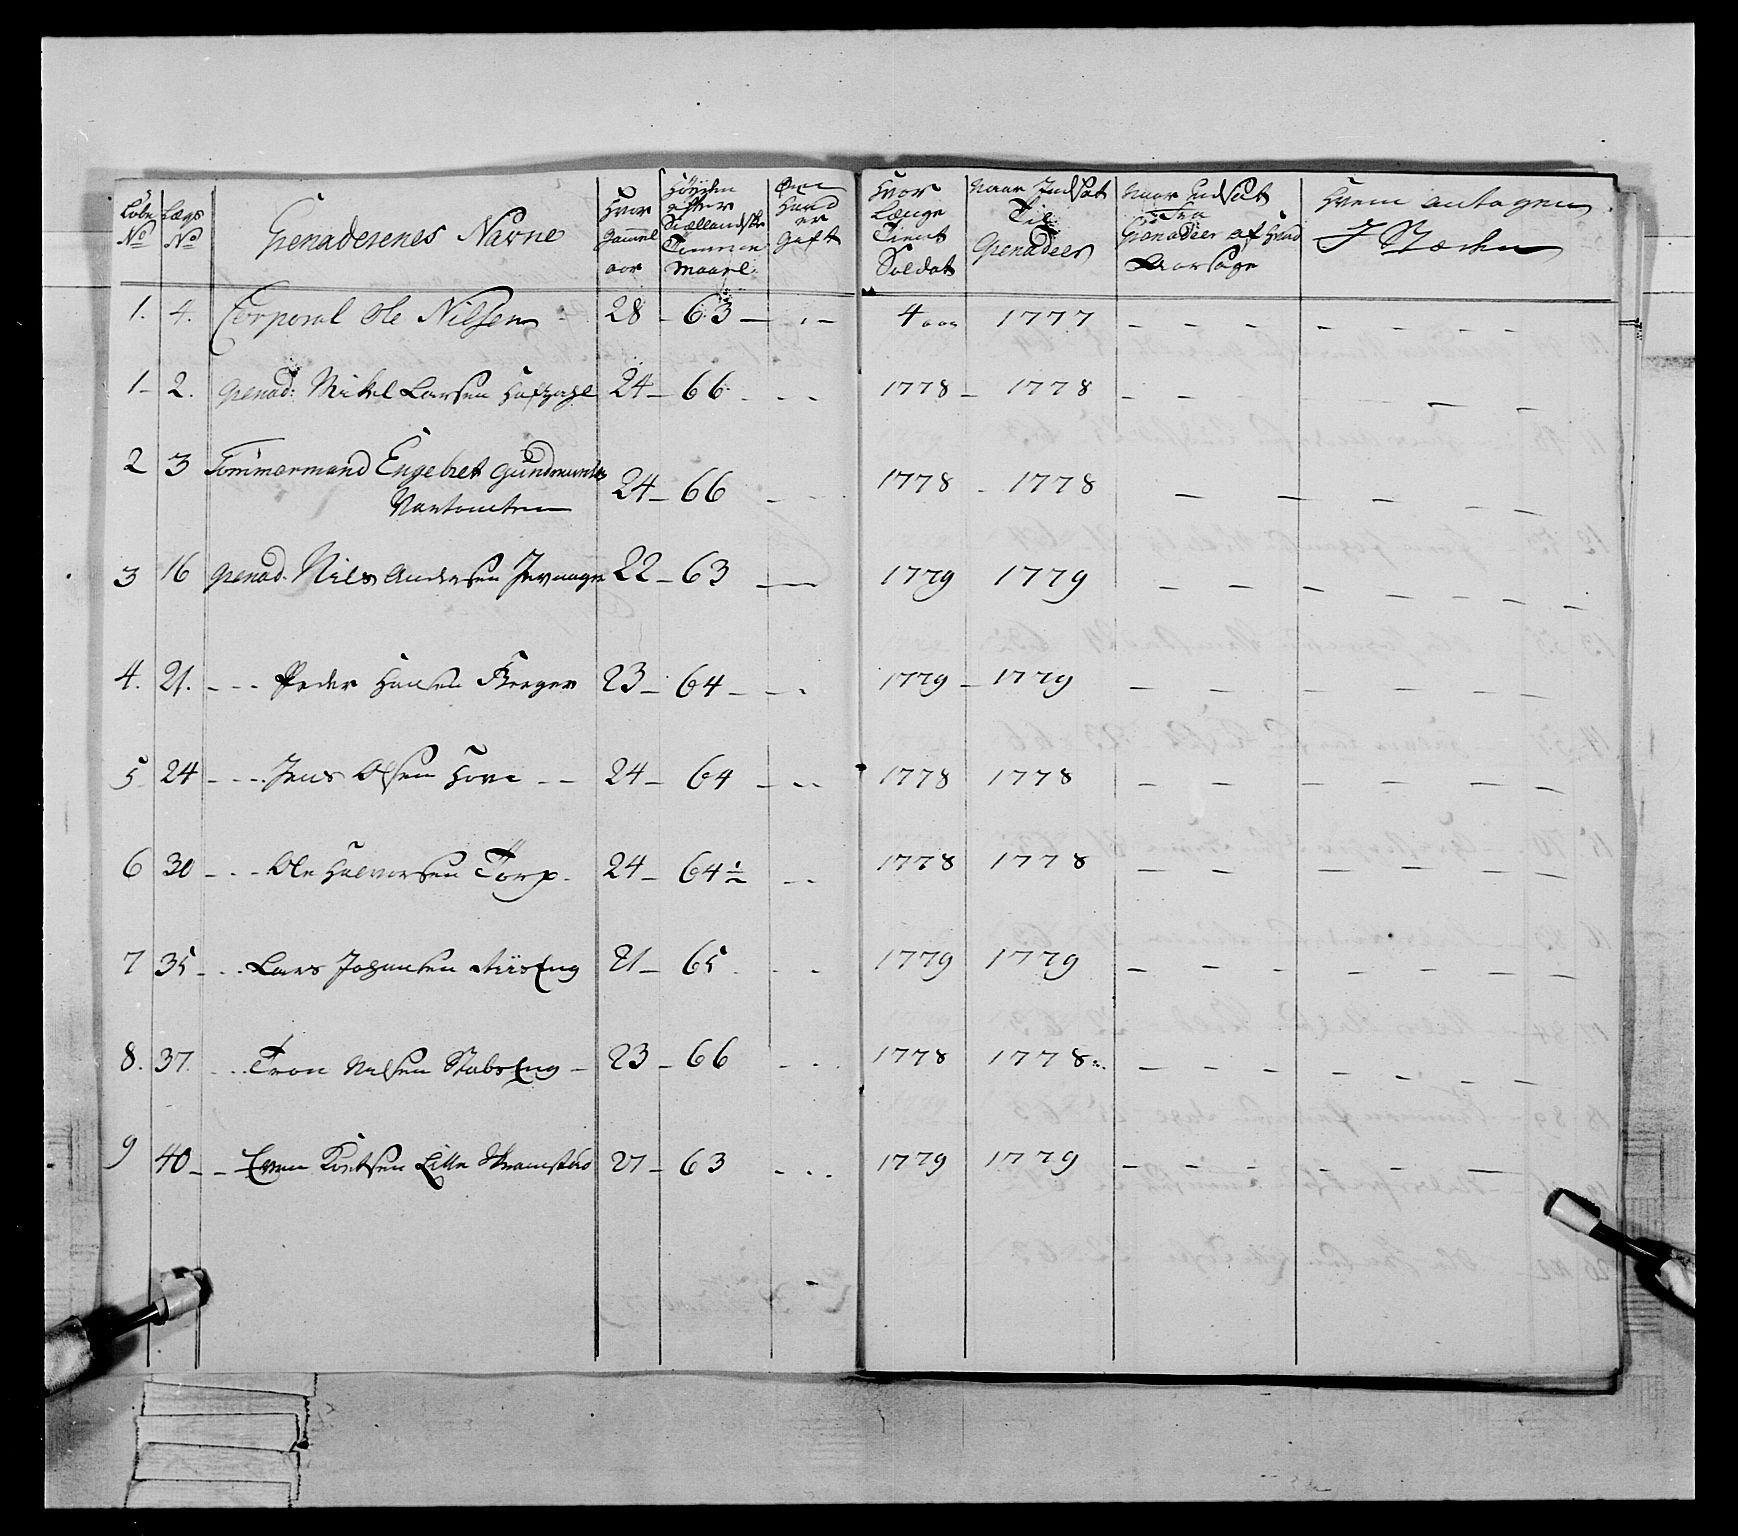 Løbe No | Lægs No | Grenaderenes Navne | Hvor Gammel aar | Höyden efter Siællandske Tomme Maael. | Om Hand er Gift | Hvor Længe Tient Soldat | Naar Indsat Til Grenadeer | Naar Udsat fra Grenadeer af Hvad Aarsage | Hvem antagen I Stæden
1. | 4. | Corporal Ole Nilsen | 28 | 63 | - | 4 aar | 1777
1 | 2. | Grenad: Mikel Larsen | 24 | 66 | - | 1778 | 1778
2 | 3 | Tömmermand Engebret Gundmundse | 24 | 66 | - | 1778 | 1778
3 | 16 | Grenad. Nils Andersen | 22 | 63 | - | 1779 | 1779
4. | 21. | - - - Peder Hansen Berger | 23 | 64 | - | 1779 | 1779
5 | 24 | - - - Jens Olsen Hove | 24 | 64 | - | 1778 | 1778
6 | 30 | - - - Ole Halvorsen Törp | 24 | 64½ | - | 1778 | 1778
7 | 35 | - - - Lars Johansen | 21 | 65 | - | 1779 | 1779
8. | 37. | - - - Tron Nilsen StabsEng | 23 | 66 | - | 1778 | 1778
9 | 40 | - - Even Lille | 27 | 63 | - | 1779 | 1779